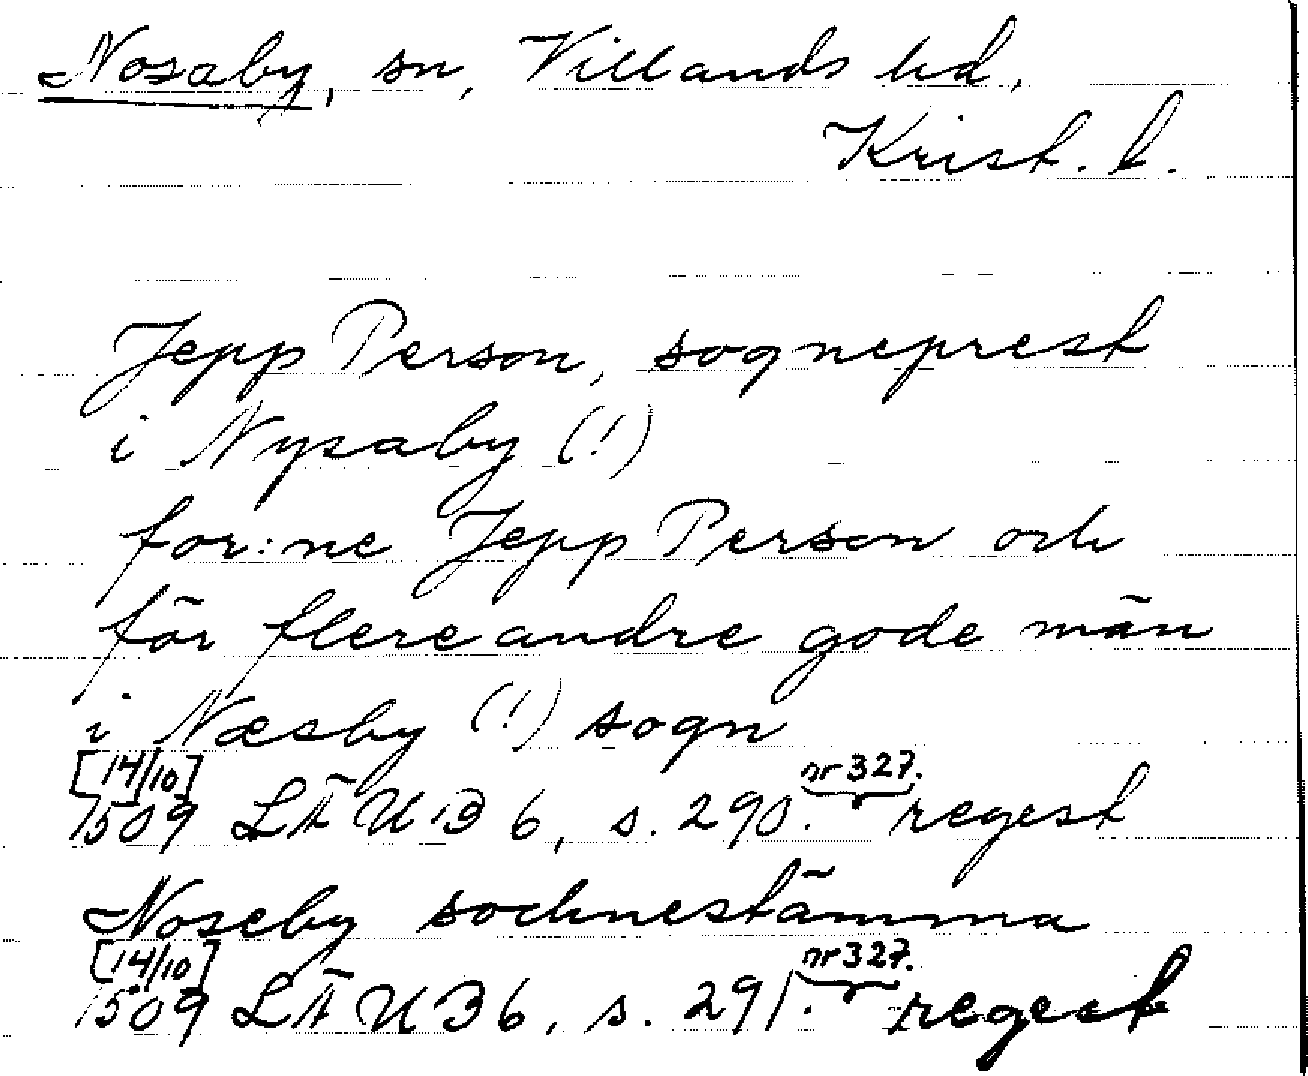 Nosaby, sn, Villands hd,
Krist. l.
Jepp Person, sogneprest
i Nysaby (!)
for:ne Jepp Person och
för flere andre gode män
i Næsby (!) sogn
[14/10]
1509 LÄUB 6, s. 290. nr 327. regest
Noseby sochnestämma
[14/10]
1509 LÄUB 6, s. 291. nr 327. regest